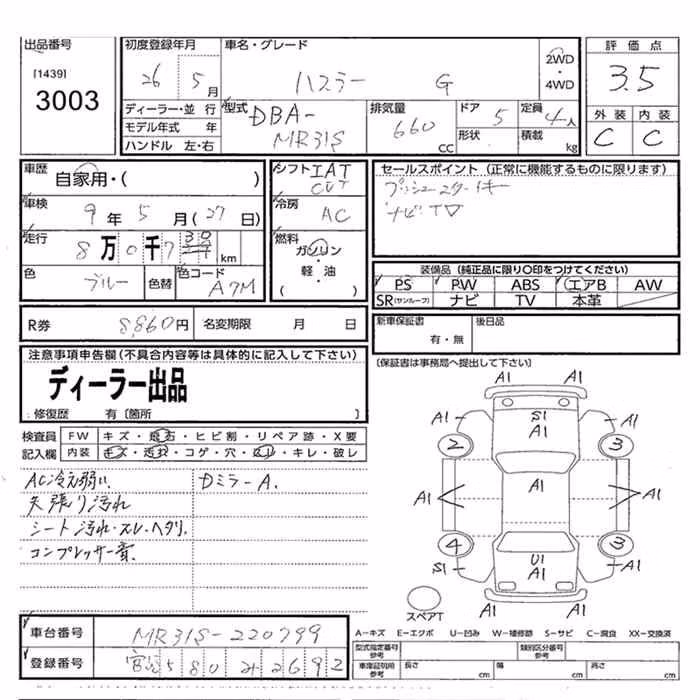 出品番号
[1439]
3003
初度登録年月
26 5月
車名・グレード
ハスラー G
2WD
・
4WD
評価点
3.5
外装 内装
C C
ディーラー・並 行
モデル年式 年
ハンドル 左・右
型式
DBA-
MR31S
排気量
660
CC
ドア 5
形状
定員 4人
積載 kg
車歴
自家用・( )
車検
9年5月(27日)
走行
8万0千7 30 km
色 ブルー 色替 色コード A7M
シフト IAT
CVT
冷房
AC
燃料
ガソリン
・
軽・油
( )
セールスポイント (正常に機能するものに限ります)
プッシュスタートキー
ナビTV
装備品 (純正品に限り〇印をつけてください)
PS PW ABS エアB AW
SR(サンルーフ) ナビ TV 本革
R券 8,860円 名変期限 月 日
新車保証書 後日品
有・無
[保証書は事務局へ提出して下さい]
注意事項申告欄(不具合内容等は具体的に記入して下さい)
ディーラー出品
修復歴 有 〔箇所 〕
検査員 FW キズ・飛石・ヒビ割・リペア跡・X要
記入欄 内装 キズ・汚れ・コゲ・穴・スレ・キレ・破レ
AC冷え弱い. DミラーA.
天張り汚れ
シート汚れ・スレ・ヘタリ.
コンプレッサー音.
A1
A1 A1
A1 S1 A1
A1
2 3
A1 A1 A1
4 3
S1 U1 A1
A1
A1
スペアT
A-キズ E-エクボ U-凹み W-補修跡 S-サビ C-腐食 XX-交換済
車台番号 MR31S-220799
登録番号 宮崎 580 み 2692
型式指定番号 参考 類別区分番号 参考
車庫証明用 参考 長さ cm 幅 cm 高さ cm